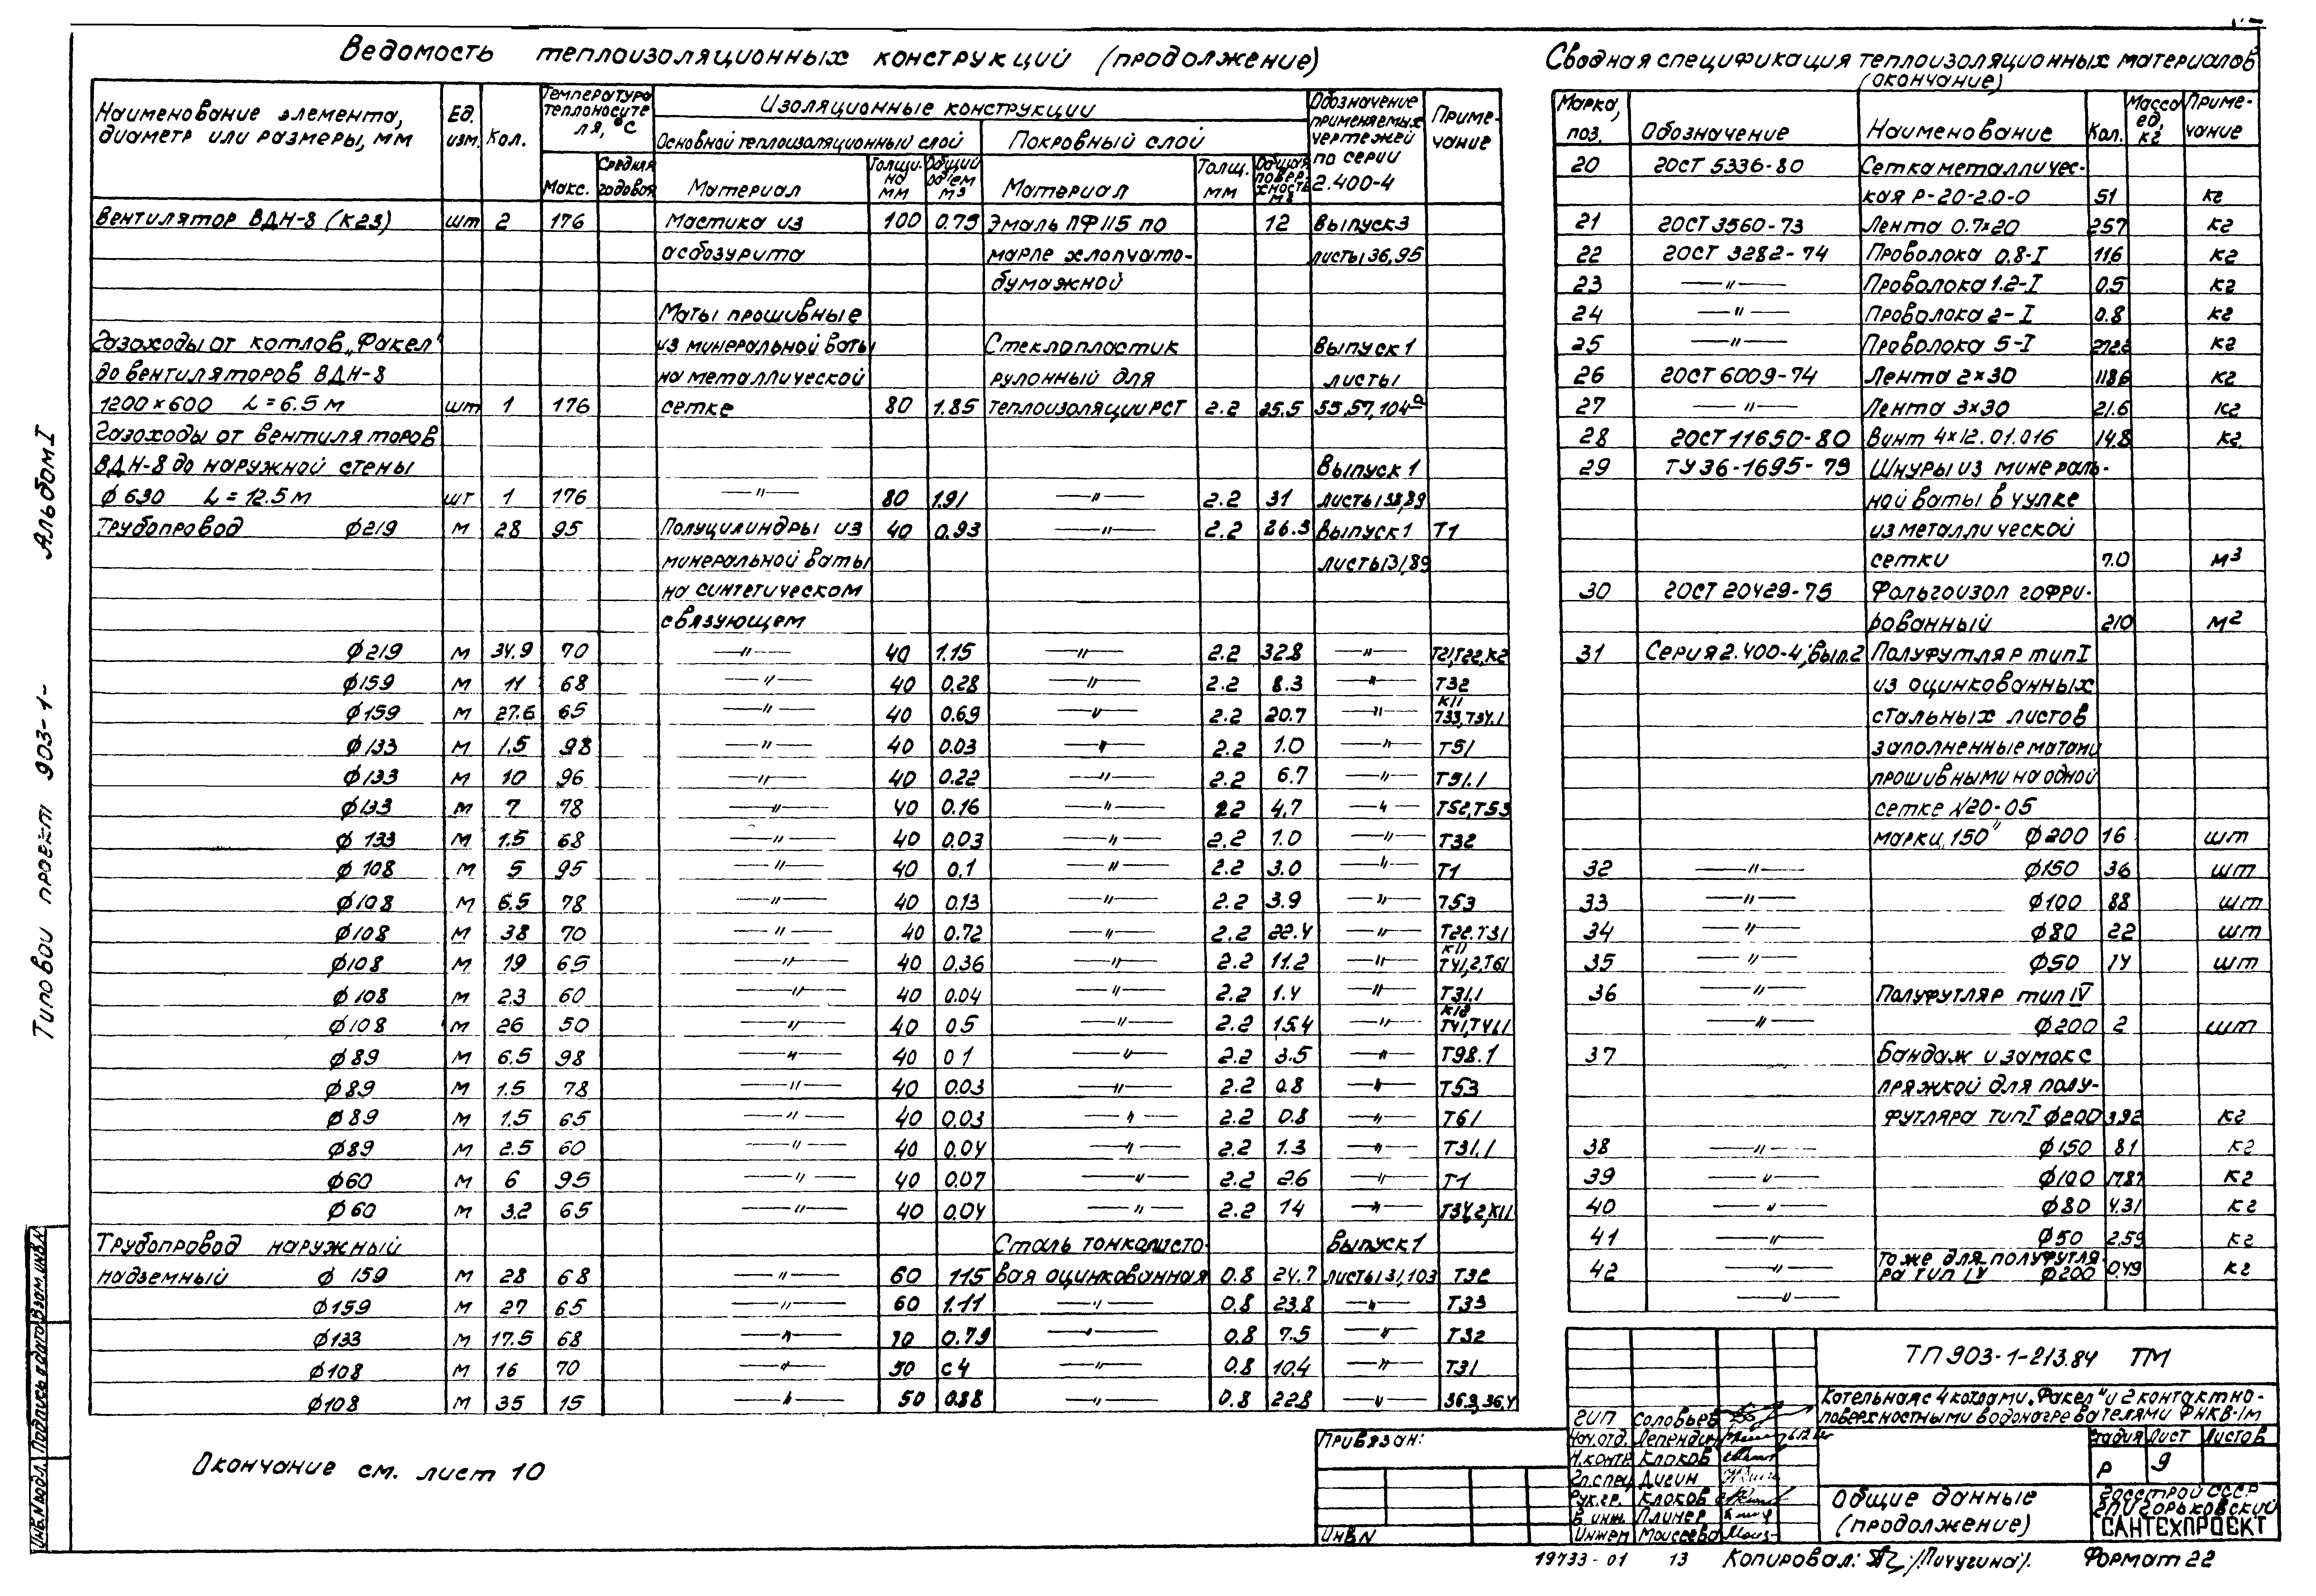 Ведомость теплоизоляционных конструкций (продолжение)
Наименование элемента, диаметр или размеры, мм | Ед. изм. | Кол. | Температура теплоносителя, °С | Изоляционные конструкции | Обозначение применяемых чертежей по серии 2.400-4 | Примечание
Основной теплоизоляционный слой | Покровный слой
Макс. | Средняя годовая | Материал | Толщина мм | Общий объем м3 | Материал | Толщ. мм | Общая поверхность м2
Вентилятор ВДН-8 (К23) шт 2 176 Мастика из 100 0.75 Эмаль ПФ115 по 12 Выпуск3
асбозурита марле хлопчато- листы36,95
бумажной
Маты прошивные
Газоходы от котлов „Факел" из минеральной ваты Стеклопластик Выпуск 1
до вентиляторов ВДН-8 на металлической рулонный для листы
1200×600 L=6.5м шт 1 176 сетке 80 1.85 теплоизоляции РСТ 2.2 25.5 55,57,104а
Газоходы от вентиляторов
ВДН-8 до наружной стены Выпуск 1
ф 630 L=12.5м шт 1 176 —"— 80 1.91 —"— 2.2 31 листы38,89
Трубопровод ф219 м 28 95 Полуцилиндры из 40 0.93 —"— 2.2 26.3 Выпуск 1 Т1
минеральной ваты листы31,89
на синтетическом
связующем
ф219 м 34.9 70 —"— 40 1.15 —"— 2.2 32.8 —"— Т21,Т22,К2
ф159 м 11 68 —"— 40 0.28 —"— 2.2 8.3 —"— Т32
ф159 м 27.6 65 —"— 40 0.69 —"— 2.2 20.7 —"— К11 Т33,Т34.1
ф133 м 1.5 98 —"— 40 0.03 —"— 2.2 1.0 —"— Т51
ф133 м 10 96 —"— 40 0.22 —"— 2.2 6.7 —"— Т51.1
ф133 м 7 78 —"— 40 0.16 —"— 2.2 4.7 —"— Т52,Т53
ф 133 м 1.5 68 —"— 40 0.03 —"— 2.2 1.0 —"— Т32
ф 108 м 5 95 —"— 40 0.1 —"— 2.2 3.0 —"— Т1
ф108 м 6.5 78 —"— 40 0.13 —"— 2.2 3.9 —"— Т53
ф108 м 38 70 —"— 40 0.72 —"— 2.2 22.4 —"— Т22.Т31
ф108 м 19 65 —"— 40 0.36 —"— 2.2 11.2 —"— К11 Т41,2,Т61
ф108 м 2.3 60 —"— 40 0.04 —"— 2.2 1.4 —"— Т31.1
ф108 м 26 50 —"— 40 0.5 —"— 2.2 15.4 —"—
ф89 м 6.5 98 —"— 40 0.1 —"— 2.2 3.5 —"— Т98.1
ф89 м 1.5 78 —"— 40 0.03 —"— 2.2 0.8 —"— Т53
ф89 м 1.5 65 —"— 40 0.03 —"— 2.2 0.8 —"— Т61
ф89 м 2.5 60 —"— 40 0.04 —"— 2.2 1.3 —"— Т31.1
ф60 м 6 95 —"— 40 0.07 —"— 2.2 2.6 —"— Т1
ф60 м 3.2 65 —"— 40 0.04 —"— 2.2 1.4 —"— Т34.2,К11
Трубопровод наружный Сталь тонколисто- Выпуск 1
надземный ф 159 м 28 68 —"— 60 1.15 вая оцинкованная 0.8 24.7 листы31,103 Т32
ф159 м 27 65 —"— 60 1.11 —"— 0.8 23.8 —"— Т33
ф133 м 17.5 68 —"— 0.79 —"— 0.8 7.5 —"— Т32
ф108 м 16 70 —"— 50 —"— 0.8 10.4 —"— Т31
ф108 м 35 15 —"— 50 0.88 —"— 0.8 22.8 —"— 36.3,36.4
Окончание см. лист 10
Сводная спецификация теплоизоляционных материалов
(окончание)
Марка, поз. | Обозначение | Наименование | Кол. | Масса ед, кг | Примечание
20 ГОСТ 5336-80 Сетка металличес-
кая Р-20-2.0-0 51 кг
21 ГОСТ 3560-73 Лента 0.7×20 257 кг
22 ГОСТ 3282-74 Проволока 0.8-I 11.6 кг
23 —"— Проволока 1.2-I 0.5 кг
24 —"— Проволока 2-I 0.8 кг
25 —"— Проволока 5-I кг
26 ГОСТ 6009-74 Лента 2×30 118.6 кг
27 —"— Лента 3×30 21.6 кг
28 ГОСТ 11650-80 Винт 4×12.01.016 14.8 кг
29 ТУ36-1695-79 Шнуры из минераль-
ной ваты в чулке
из металлической
сетки 7.0 м3
30 ГОСТ 20429-75 Фольгоизол гофри-
рованный 210 м2
31 Серия 2.400-4, вып.2 Полуфутляр тип I
из оцинкованных
стальных листов
заполненные матами
прошивными на одной
сетке N20-05
марки „150" ф200 16 шт
32 —"— ф150 36 шт
33 —"— ф100 88 шт
34 —"— ф80 22 шт
35 —"— ф50 14 шт
36 —"— Полуфутляр тип IV
—"— ф200 2 шт
37 Бандаж и замок с
пряжкой для полу-
футляра тип I ф200 3.92 кг
38 —"— ф150 8.1 кг
39 —"— ф100 17.87 кг
40 —"— ф80 4.31 кг
41 —"— ф50 2.59 кг
42 —"— То же для полуфутля-
ра тип IV ф200 0.49 кг
—"—
ТП 903-1-213.84 ТМ
Котельная с 4 котлами „Факел" и 2 контактно-
поверхностными водонагревателями ФНКВ-1м
ГИП Соловьев
Нач.отд.
Н.контр Клоков
Гл.спец Дигин
Рук.гр. Клоков
В инж. Плинер
Инжен Моисеева
Стадия Лист Листов
Р 9
Общие данные
(продолжение)
Госстрой СССР
ГПИ Горьковский
САНТЕХПРОЕКТ
Привязан:
Инв.N
19733-01 13 Копировал: /Пичугина/. Формат 22
Альбом I
Типовой проект 903-1-
Инв.N подл. Подпись и дата Взам.инв.N